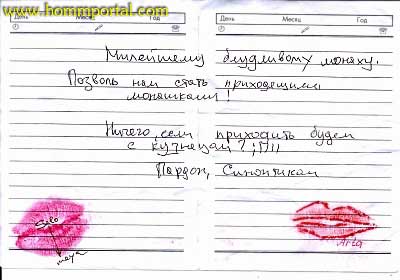 www.hommportal.com
День Месяц Год День Месяц Год
Милейшему блудливому монаху.
Позволь нам стать приходящими
монашками!
Ничего, если приходить будем
с кузнецом?;)))
Пардон,
maya
Arla